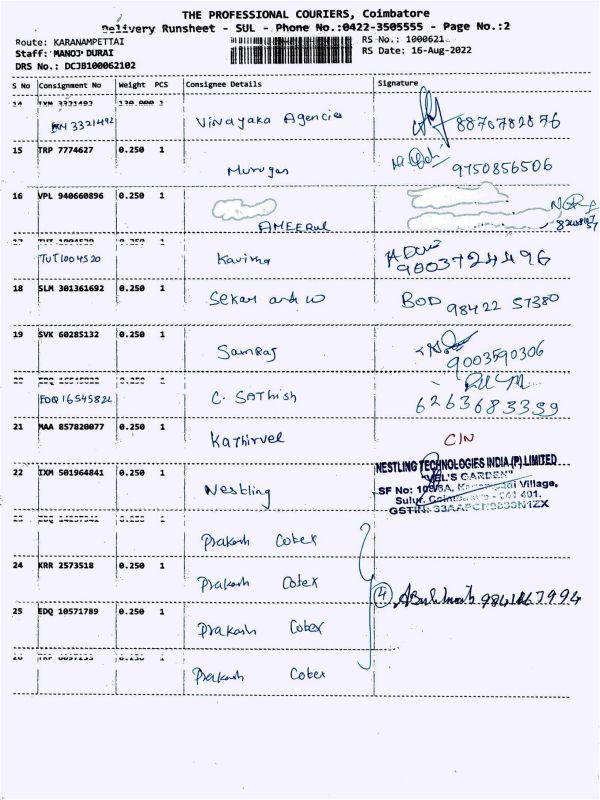 THE PROFESSIONAL COURIERS, Coimbatore
Delivery Runsheet - SUL - Phone No.:0422-3505555 - Page No.:2
Route: KARANAMPETTAI RS No.: 1000621
Staff: MANOJ DURAI RS Date: 16-Aug-2022
DRS No.: DCJB100062102
S No Consignment No Weight PCS Consignee Details Signature
14 TXM 3321492 130.000 1
3321492 Vinayaka Agencies
15 TRP 7774627 0.250 1
Murugan 9750856506
16 VPL 940660896 0.250 1
AMEERUL
17 TUT 1004520 0.250 1
TUT1004520 Kavima 9003724496
18 SLM 301361692 0.250 1
Sekar and w BOD 98422 57380
19 SVK 60285132 0.250 1
Samraj 9003590306
20 EDQ 16545822 0.250 1
EDQ16545822 C. Sathish 6263683359
21 MAA 857820077 0.250 1
Kathirvel C/N
22 TXM 501964841 0.250 1
Nestling
NESTLING TECHNOLOGIES INDIA (P) LIMITED
"VEL'S GARDEN"
SF No: Village,
Sulur, Coimbatore - 641 401.
GSTIN:
23 EDQ
Prakash Cotex
24 KRR 2573518 0.250 1
Prakash Cotex 4
25 EDQ 10571789 0.250 1
Prakash Cotex
26 TRP 0.250 1
Prakash Cotex